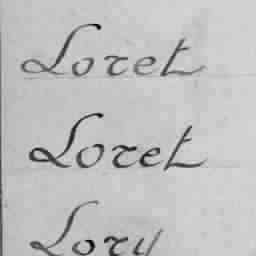 Loret
Loret
Lory